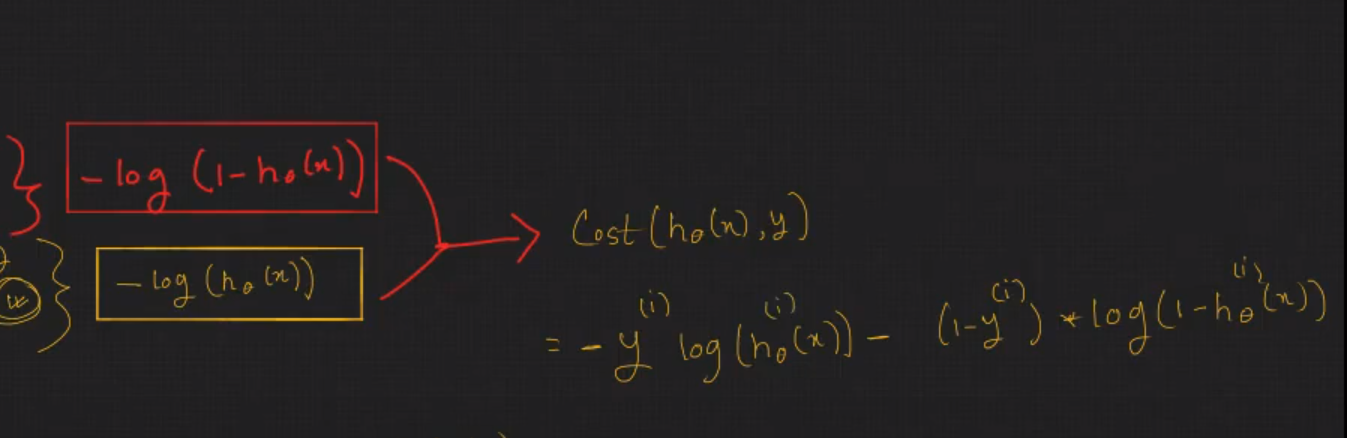 -log (1-hθ(x))
-log (hθ(x))
Cost (hθ(x), y)
= - y⁽ⁱ⁾ log (hθ⁽ⁱ⁾(x)) - (1-y⁽ⁱ⁾) * log (1-hθ⁽ⁱ⁾(x))